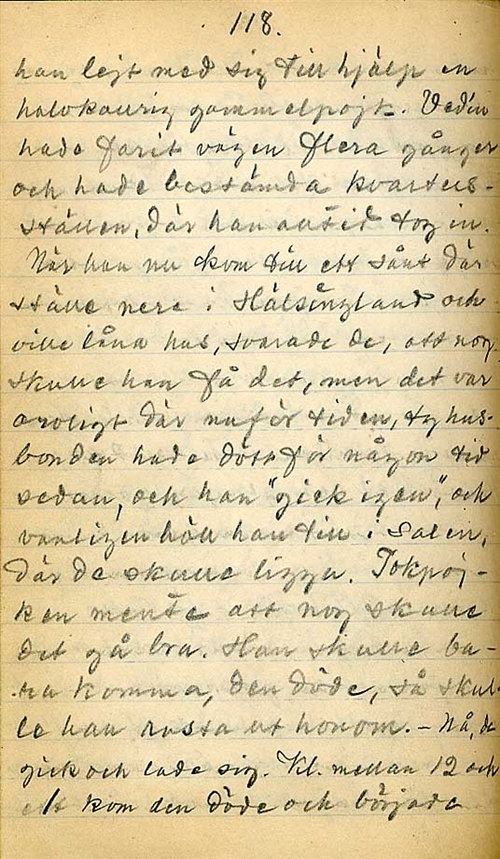 118.
han lejt med sig till hjälp en
halvkaurig gammelpojk. Vedin
hade farit vägen flera gånger
och hade bestämda kvarters-
ställen, där han alltid tog in.
När han nu kom till ett sånt där
ställe nere i Hälsingland och
ville låna hus, svarade de, att nog
skulle han få det, men det var
oroligt där nuför tiden, ty hus-
bonden hade dött för någon tid
sedan, och han "gick igen", och
vanligen höll han till i salen,
där de skulle ligga. Tokpoj-
ken mente att nog skulle
det gå bra. Han skulle ba-
ra komma, den döde, så skul-
le han rusta ut honom. - Nå, de
gick och lade sig. Kl. mellan 12 och
1 kom den döde och började